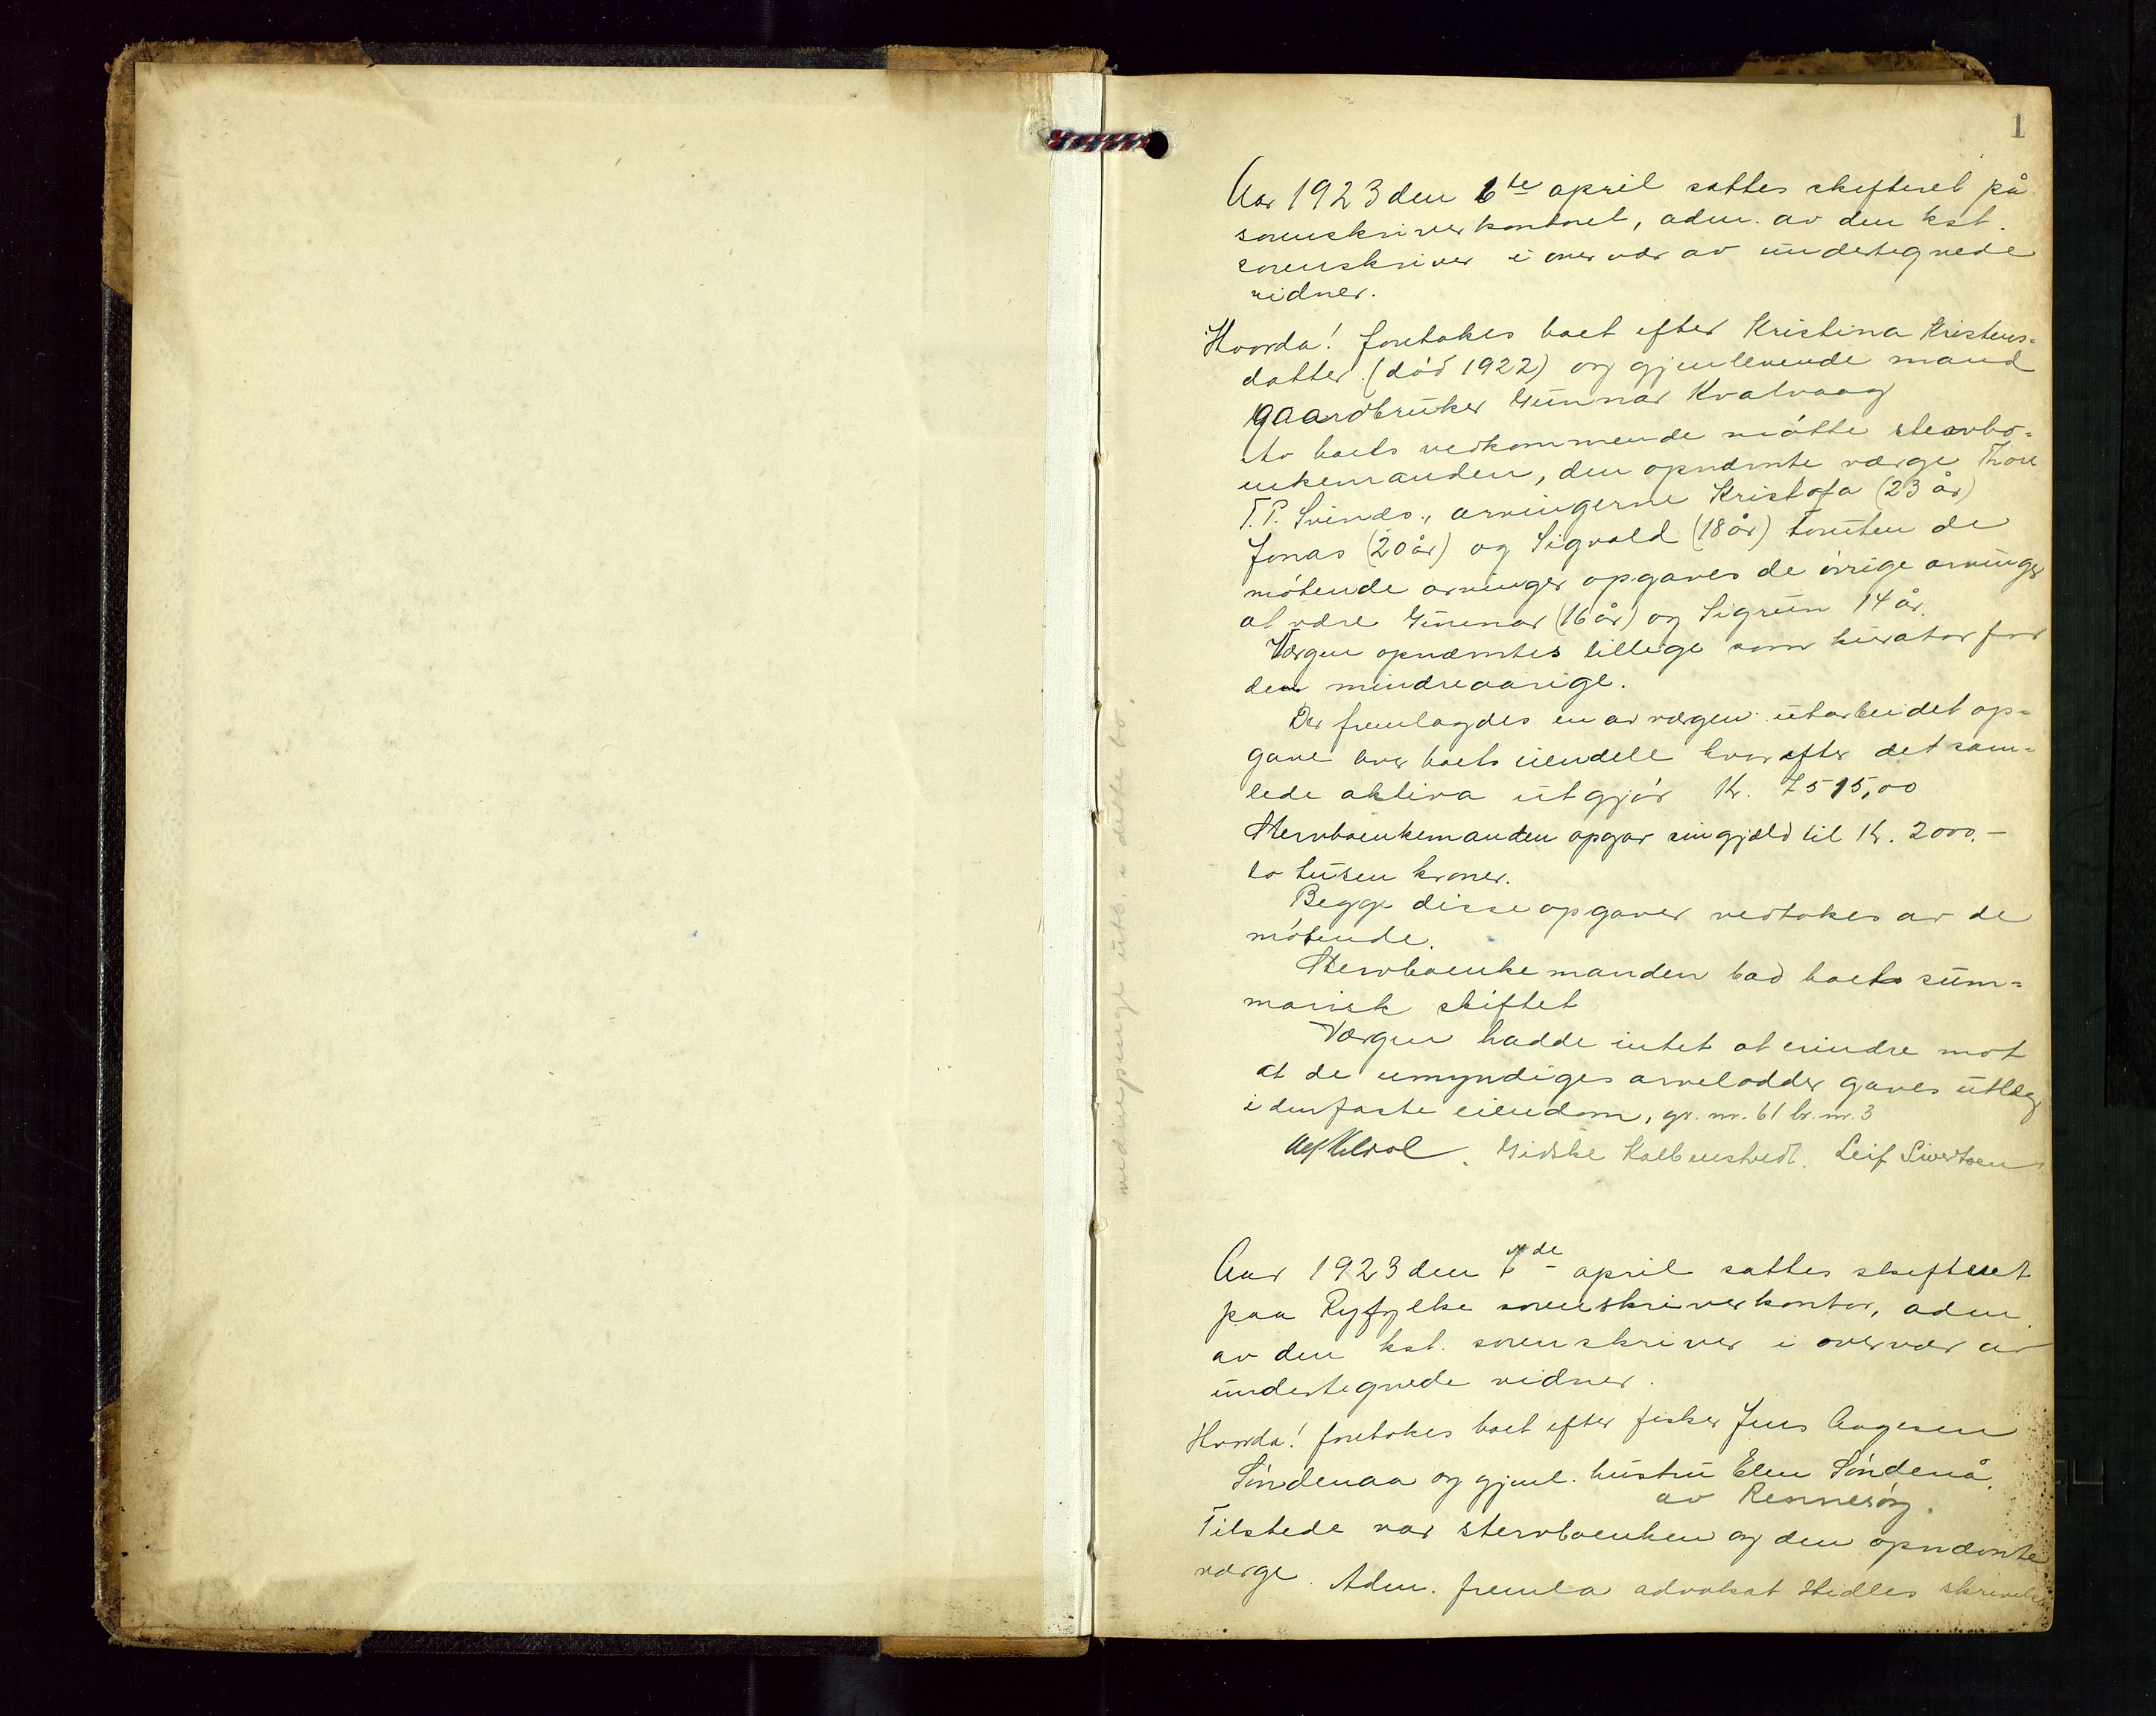 1
Aar 1923 den 6te april sattes skifteret på
sorenskriverkontoret, adm. av den kst.
sorenskriver i overvær av undertegnede
vidner.
Hvorda! foretokes boet efter Kristina Kristens-
datter (død 1922) og gjenlevende mand
gaardbruker Gunnar Kvalvaag
Av boets vedkommende møtte stervbo-
enkemanden, den opnævnte værge Thore
T. P. Svinds., arvingerne Kristofa (23 år)
Jonas (20 år) og Sigvald (18 år) foruten de
møtende arvinger opgaves de øvrige arvinger
at være Gunnar (16 år) og Sigrun 14 år.
Værgen opnævntes tillige som kurator for
den mindreaarige.
Der fremlagdes en av værgen utarbeidet op-
gave over boets eiendele hvorefter det sam-
lede aktiva utgjør Kr. 7515,00
Stervboenkemanden opgav sin gjæld til Kr. 2000.-
to tusen kroner.
Begge disse opgaver vedtokes av de
møtende.
Stervboenkemanden bad boets sum-
marisk skiftet
Værgen hadde intet at erindre mot
at de umyndiges arvelodder gaves utlæg
i den faste eiendom, gr. nr. 61 br. nr. 3
Gidske Kolbenstvedt. Leif Sivertsen
Aar 1923 den 7de april sattes skifteret
paa Ryfylke sorenskriverkontor, adm.
av den kst. sorenskriver i overvær av
undertegnede vidner.
Hvorda! foretokes boet efter fisker Jens Aagesen
Søndenaa og gjenl. hustru Elen Søndenå
av Rennesøy.
Tilstede var stervboenken og den opnævnte
værge. Adm. fremla advokat Hedles skrivelse
vedrørende i dette bo.